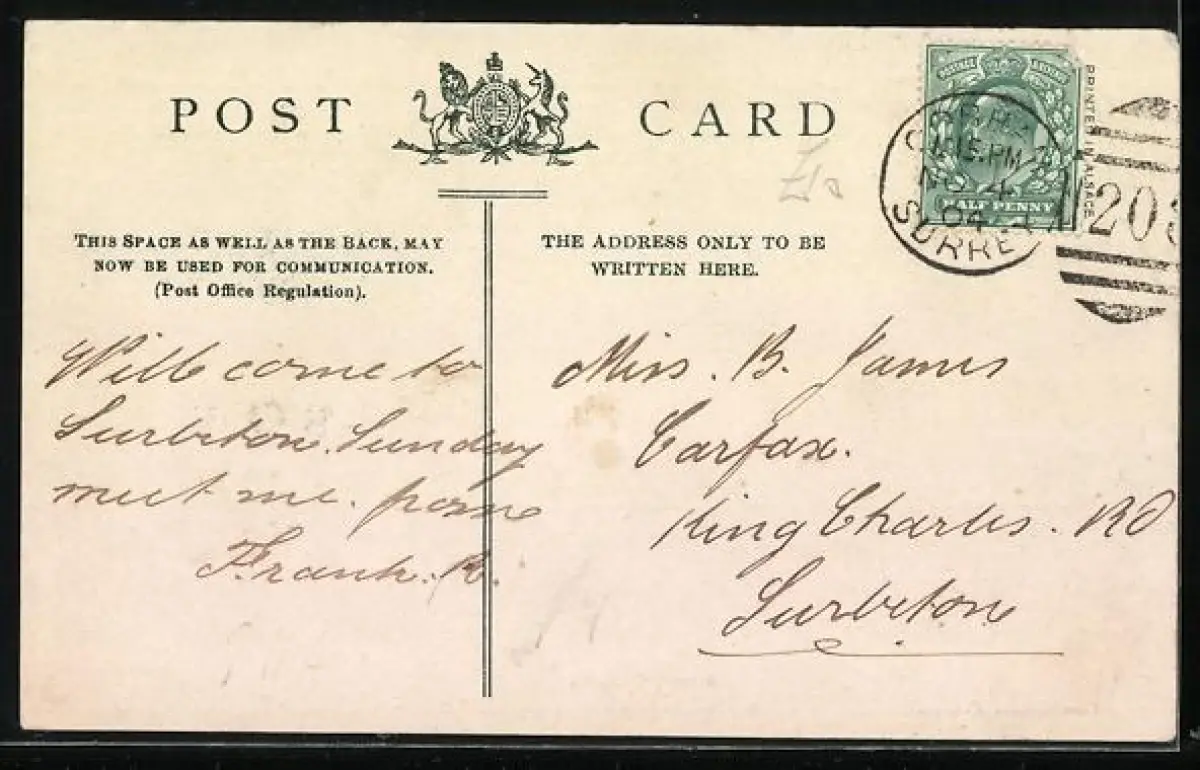 POST CARD
THIS SPACE AS WELL AS THE BACK, MAY
NOW BE USED FOR COMMUNICATION.
(Post Office Regulation).
THE ADDRESS ONLY TO BE
WRITTEN HERE.
Will come to
Surbiton. Sunday
meet me.
Frank. B.
Miss. B. James
Carfax.
King Charles. RD
Surbiton
POSTAGE REVENUE
HALF PENNY
15.PM
NO 4
04
SURREY
203
PRINTED IN ALSACE
£1